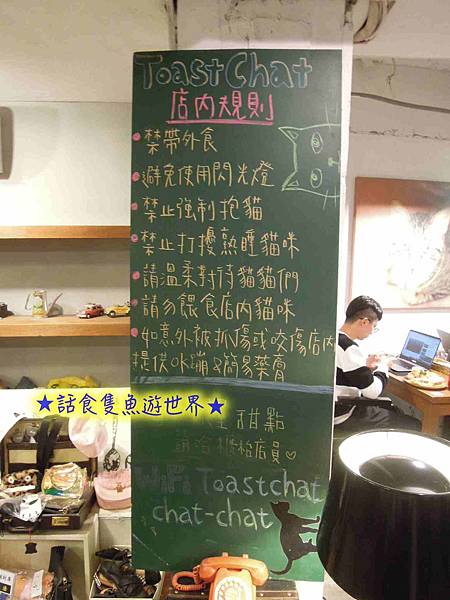 ToastChat
店內規則
禁帶外食
避免使用閃光燈
禁止強制抱貓
禁止打擾熟睡貓咪
請溫柔對待貓貓們
請勿餵食店內貓咪
如意外被抓傷或咬傷店內
提供OK蹦&簡易藥膏
★話食隻魚遊世界★
甜點
請洽櫃枱店員♡
WiFi Toastchat
chat-chat